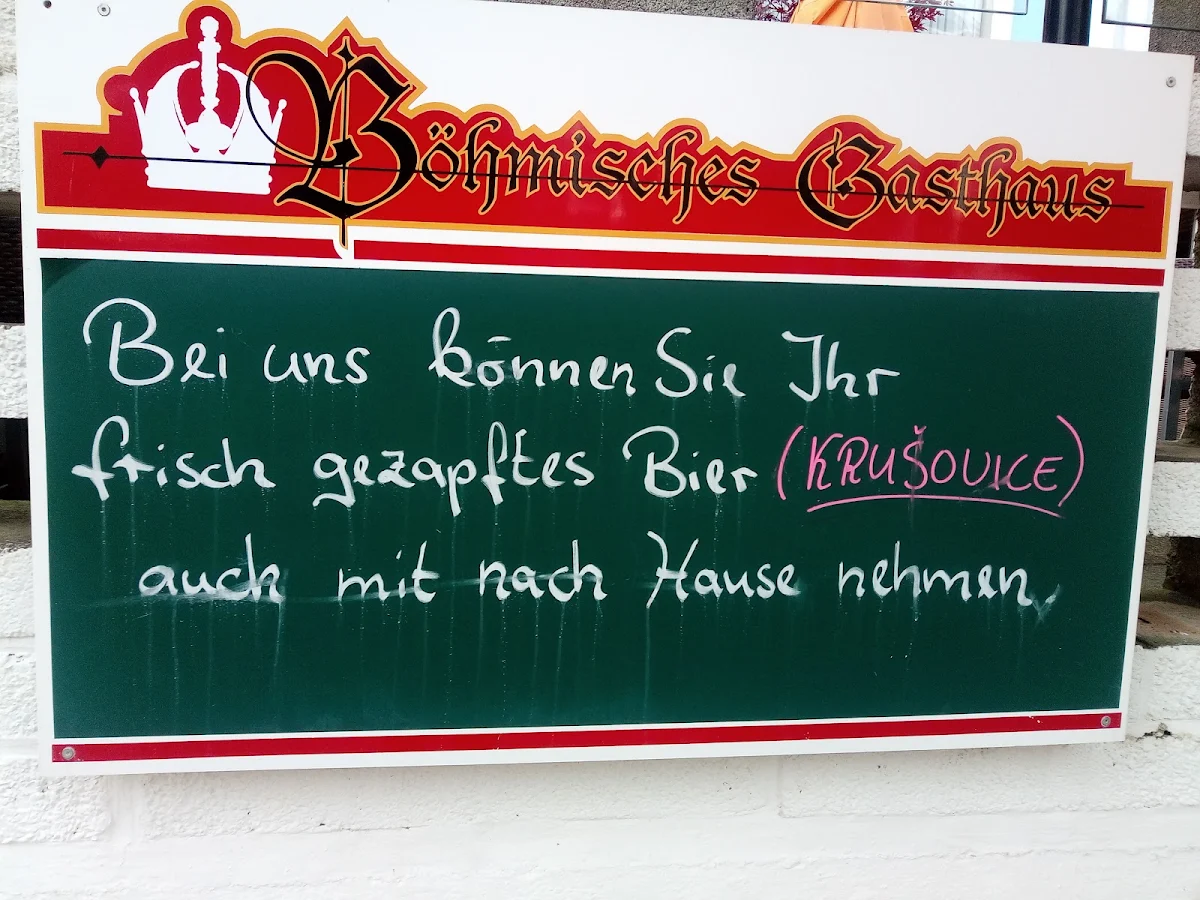 Böhmisches Gasthaus
Bei uns können Sie Ihr
frisch gezapftes Bier (KRUŠOVICE)
auch mit nach Hause nehmen.